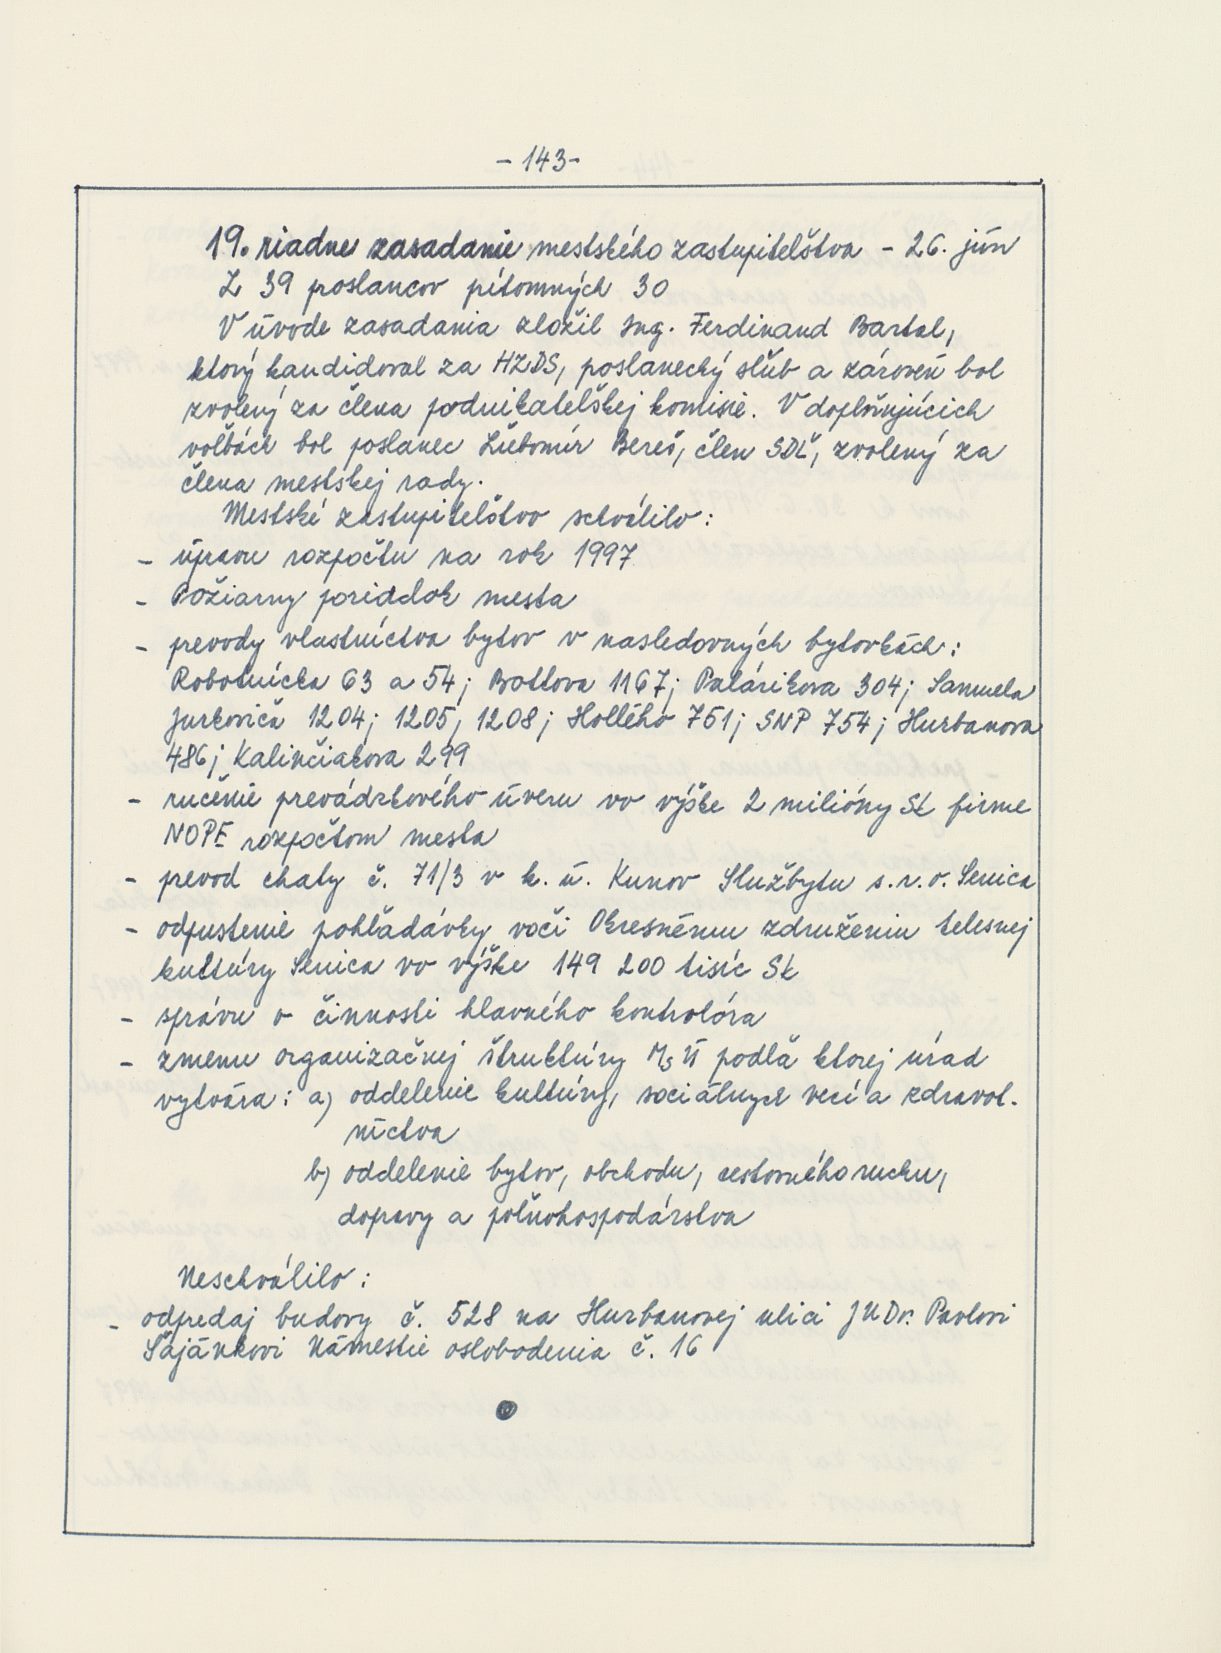 - 143 -
19. riadne zasadanie mestského zastupiteľstva - 26. jún
Z 39 poslancov prítomných 30
V úvode zasadania zložil Ing. Ferdinand Bartal,
ktorý kandidoval za HZDS, poslanecký sľub a zároveň bol
zvolený za člena podnikateľskej komisie. V doplňujúcich
voľbách bol poslanec Ľubomír Bereš, člen SDĽ, zvolený za
člena mestskej rady.
Mestské zastupiteľstvo schválilo:
- úpravu rozpočtu na rok 1997
- Požiarny poriadok mesta
- prevody vlastníctva bytov v nasledovných bytovkách:
Robotnícka 63 a 54; Bottova 1167; Palárikova 304; Samuela
Jurkoviča 1204; 1205; 1208; Hollého 751; SNP 754; Hurbanova
486; Kalinčiakova 299
- ručenie prevádzkového úveru vo výške 2 milióny Sk firme
NOPE rozpočtom mesta
- prevod chaty č. 71/3 v k. ú. Kunov Službytu s.r.o. Senica
- odpustenie pohľadávky voči Okresnému združeniu telesnej
kultúry Senica vo výške 149 200 tisíc Sk
- správu o činnosti hlavného kontrolóra
- zmenu organizačnej štruktúry MsÚ podľa ktorej úrad
vytvára: a) oddelenie kultúry, sociálnych vecí a zdravot-
níctva
b) oddelenie bytov, obchodu, cestovného ruchu,
dopravy a poľnohospodárstva
Neschválilo:
- odpredaj budovy č. 528 na Hurbanovej ulici JUDr. Pavlovi
Šajánkovi Námestie oslobodenia č. 16